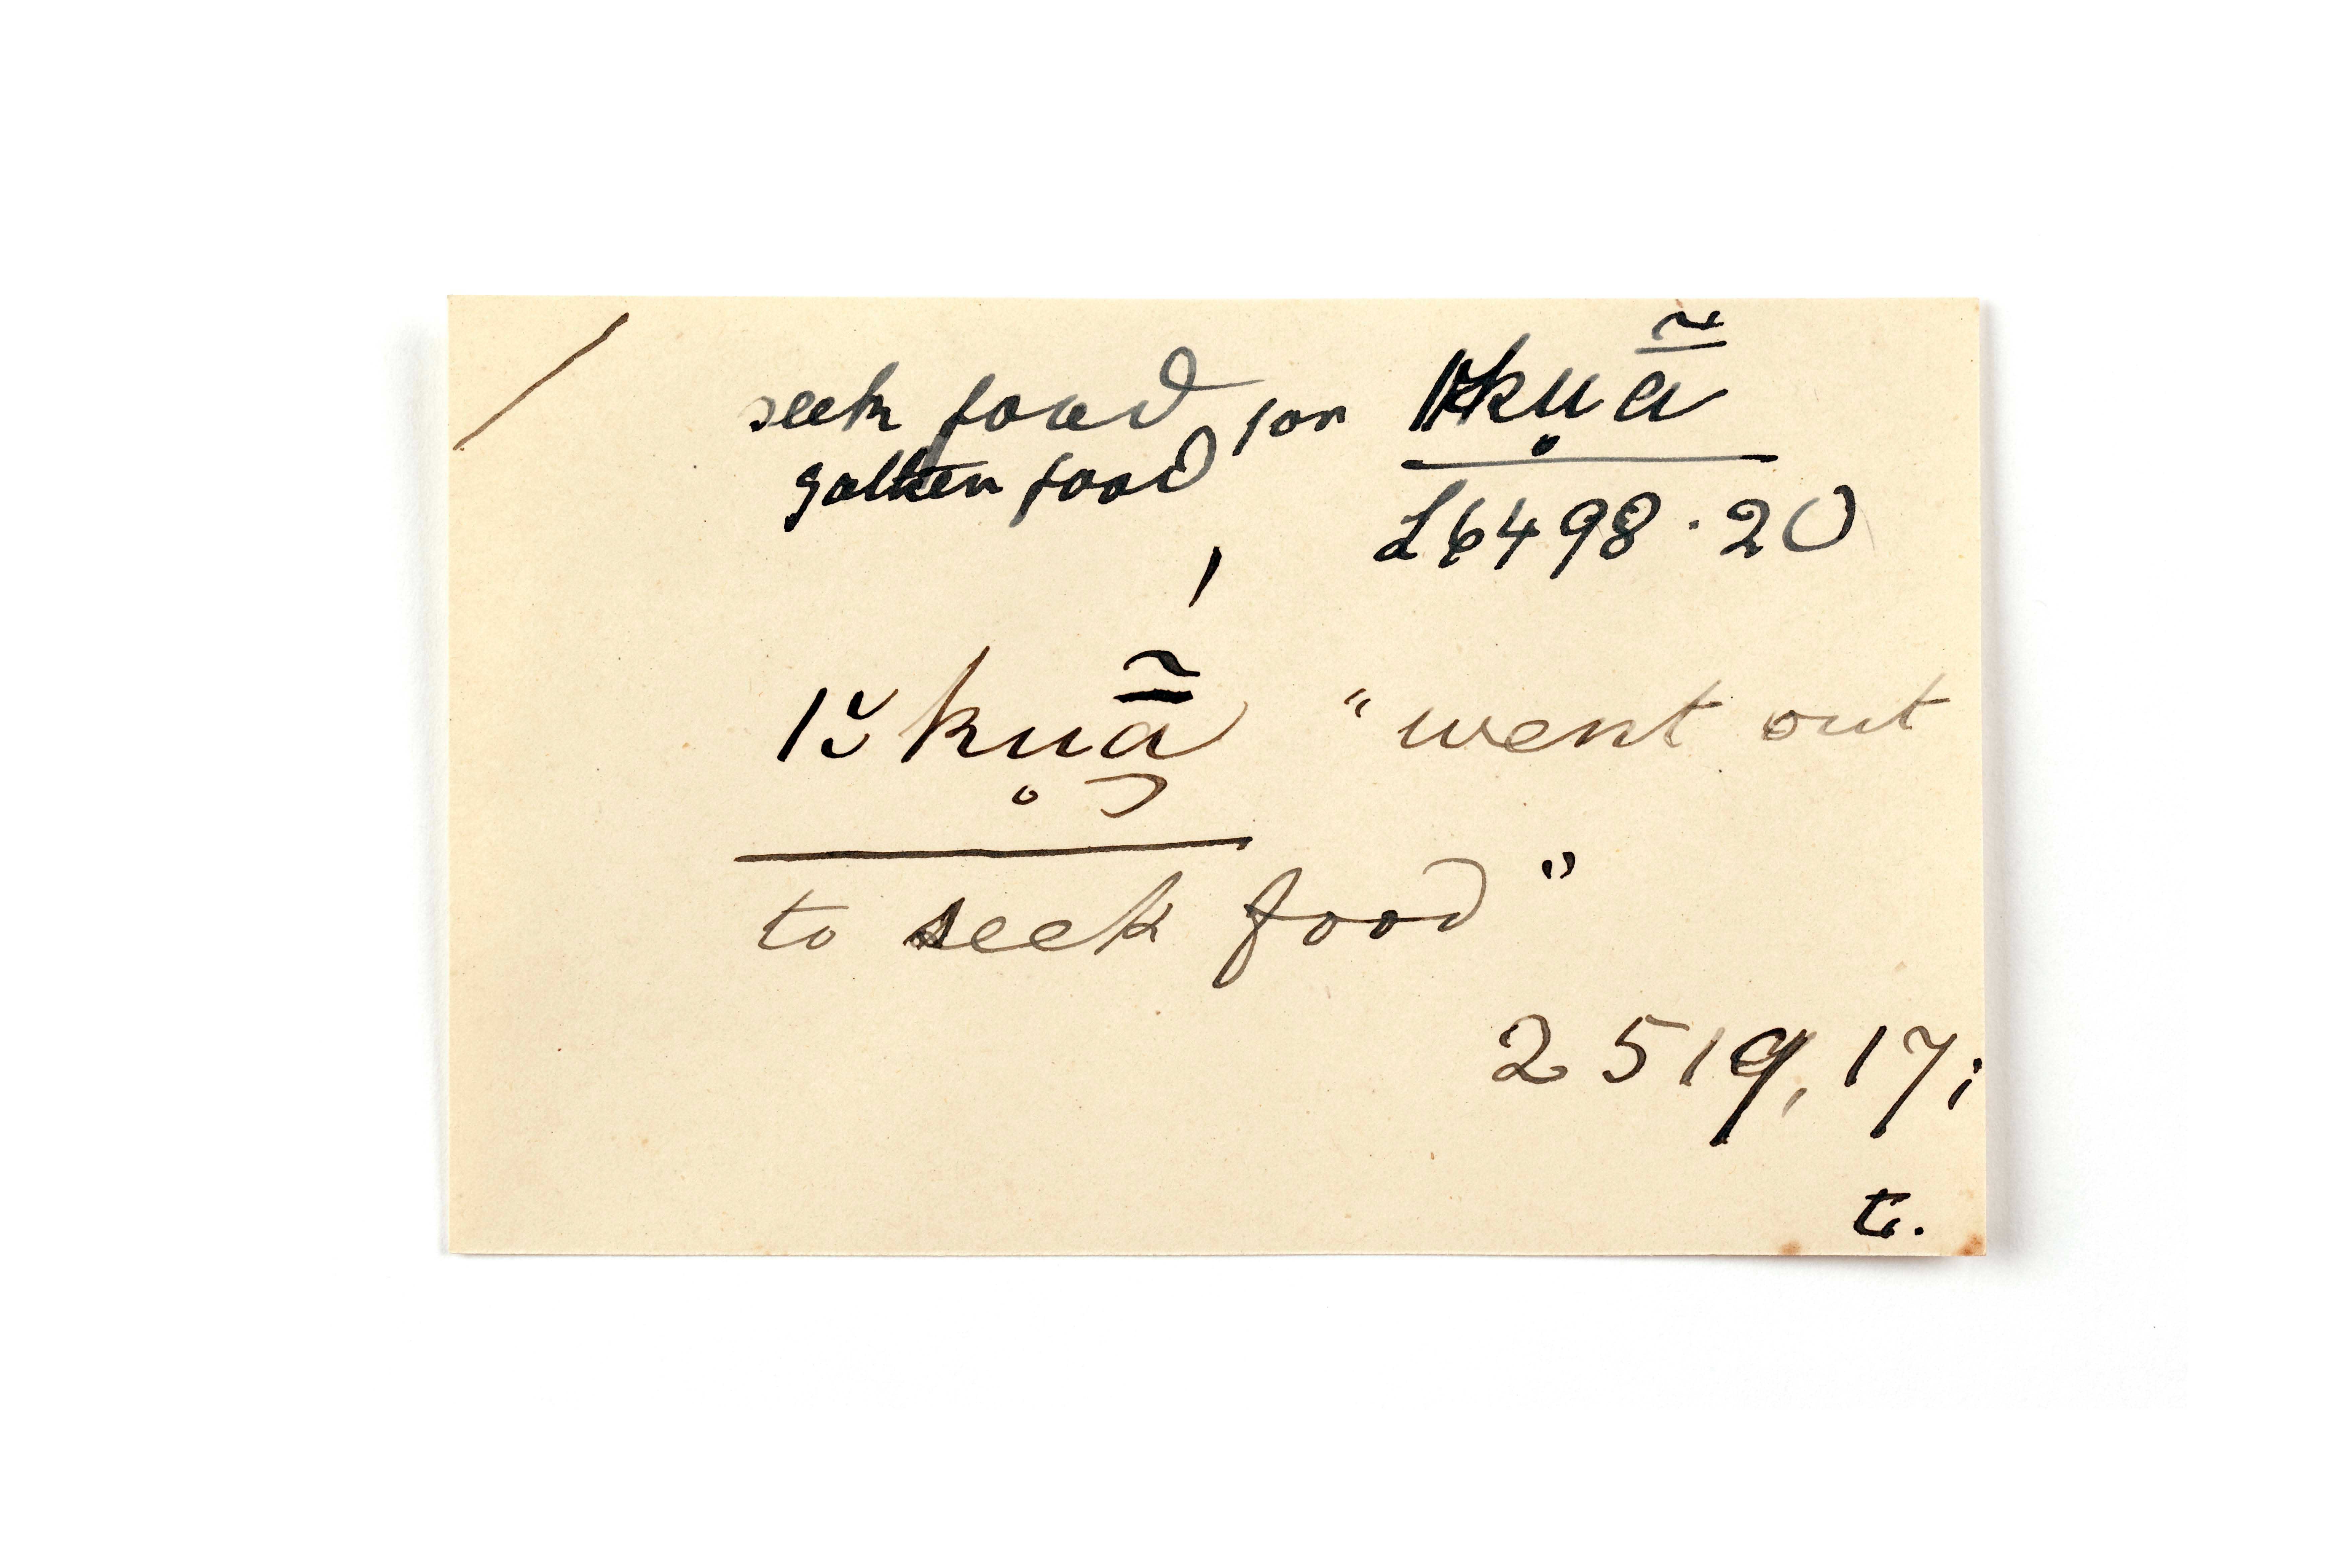 seek food, for ǀkkuã̄
gather food
L6498.20
ǀɤ̆kṵã̄ "went out
to seek food"
2519, 17;
t.